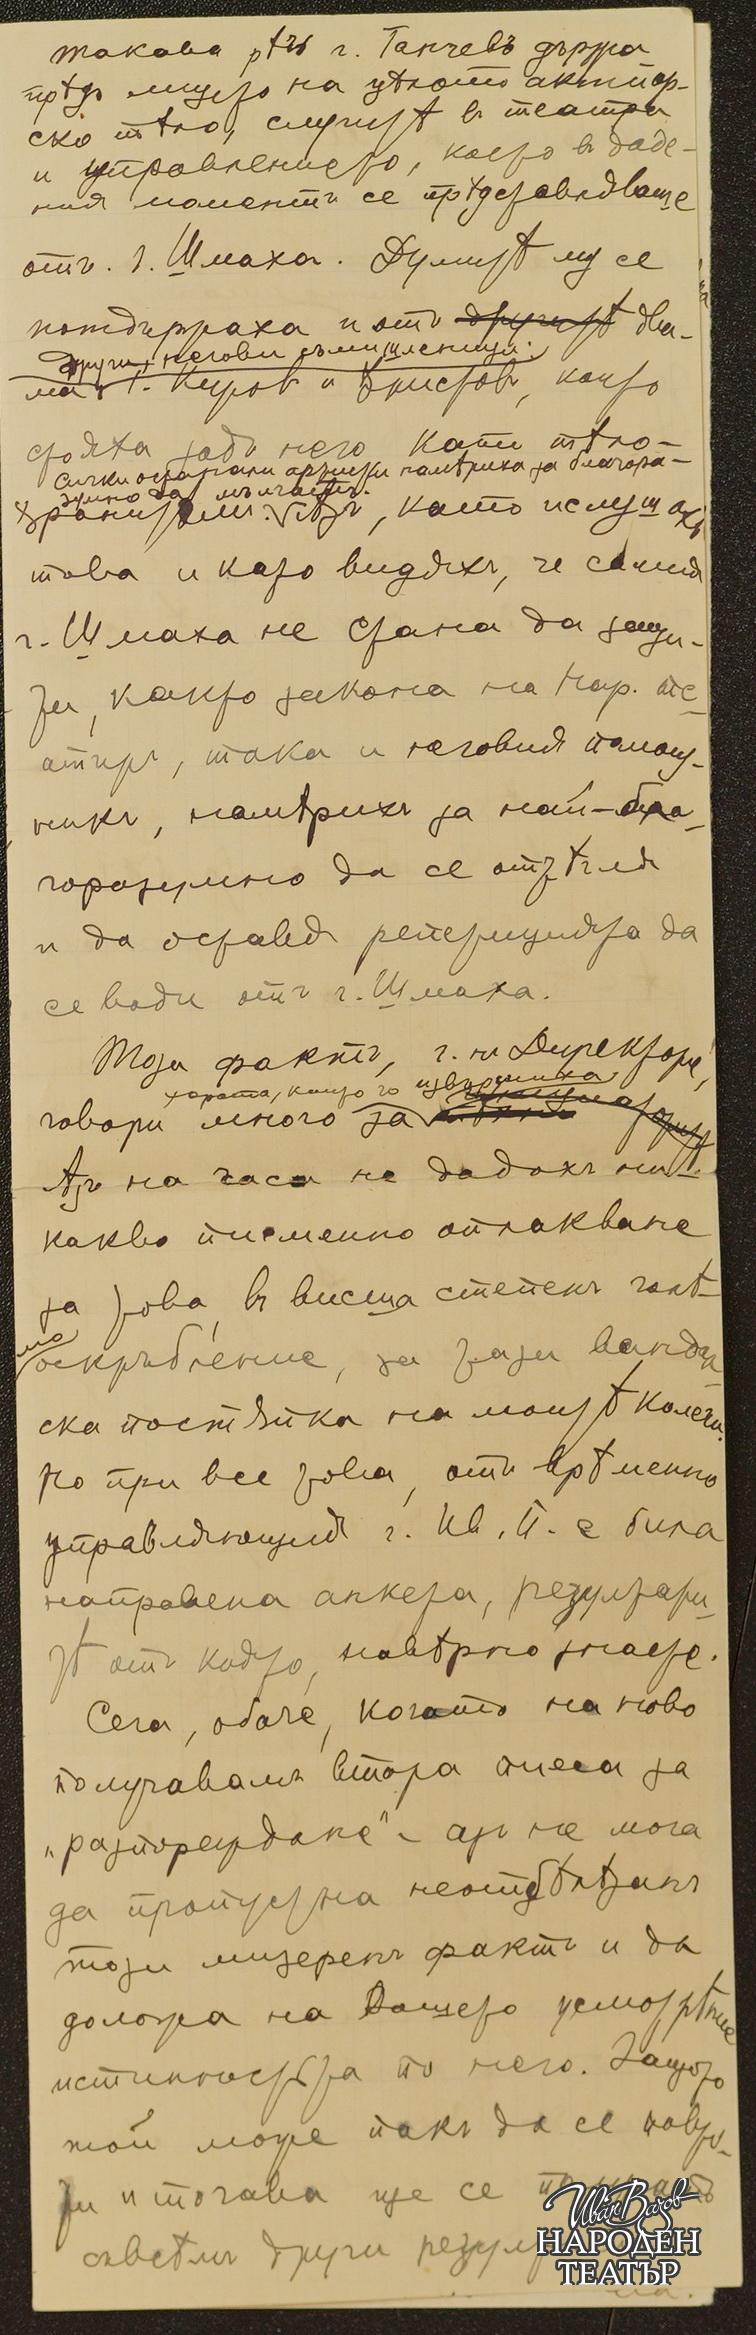 такава рѣчь г. Танчевъ държа
прѣдъ лицето на цѣлото актьор-
ско тѣло, слугитѣ въ театра
и управлението, което въ даде-
ния моментъ се прѣдставляваше
отъ г. Шмаха. Думитѣ му се
потдържаха и отъ другитѣ два-
други негови съмишленици:
ма г. Киров и Книстовъ, които
стояха задъ него като тѣло-
Сички останали артисти намѣриха за благора-
зумно да мълчатъ.
хранители. Азъ, като ислушахъ
това и като видяхъ, че самия
г. Шмаха не стана да защи-
ти, както закона на Нар. те-
атъръ, така и неговия помощ-
никъ, намѣрихъ за най-бла-
горазумно да се отдѣля
и да оставя репетицията да
се води отъ г. Шмаха.
Този фактъ, г-н Директоре,
хората, които го извършиха
говори много за
Азъ на часа не дадохъ ни-
какво писменно оплакване
за това въ висша степенъ голѣ-
мо
оскърбление, за тази вандал-
ска постъпка на моитѣ колеги.
Но при все това, отъ врѣменно
управляющия г. Ив. П. е била
направена анкета, резултати-
тѣ отъ която, навѣрно знаете.
Сега, обаче, когато на ново
получавамъ втора пиеса за
„разпореждане" – азъ не мога
да пропустна неотбѣлѣзанъ
този мизеренъ фактъ и да
доложа на Вашето усмотрѣние
истинността по него. Защото
той може пакъ да се повто-
ри и тогава ще се
съвсѣмъ други
Иван Вазов
НАРОДЕН
ТЕАТЪР